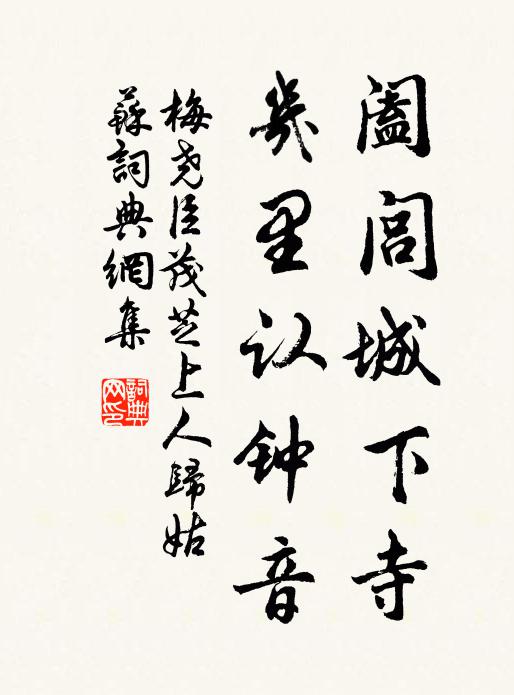 阖闾城下寺
幾里认钟音
梅尧臣茂芝上人歸姑
蘇詞典網集
詞典网印